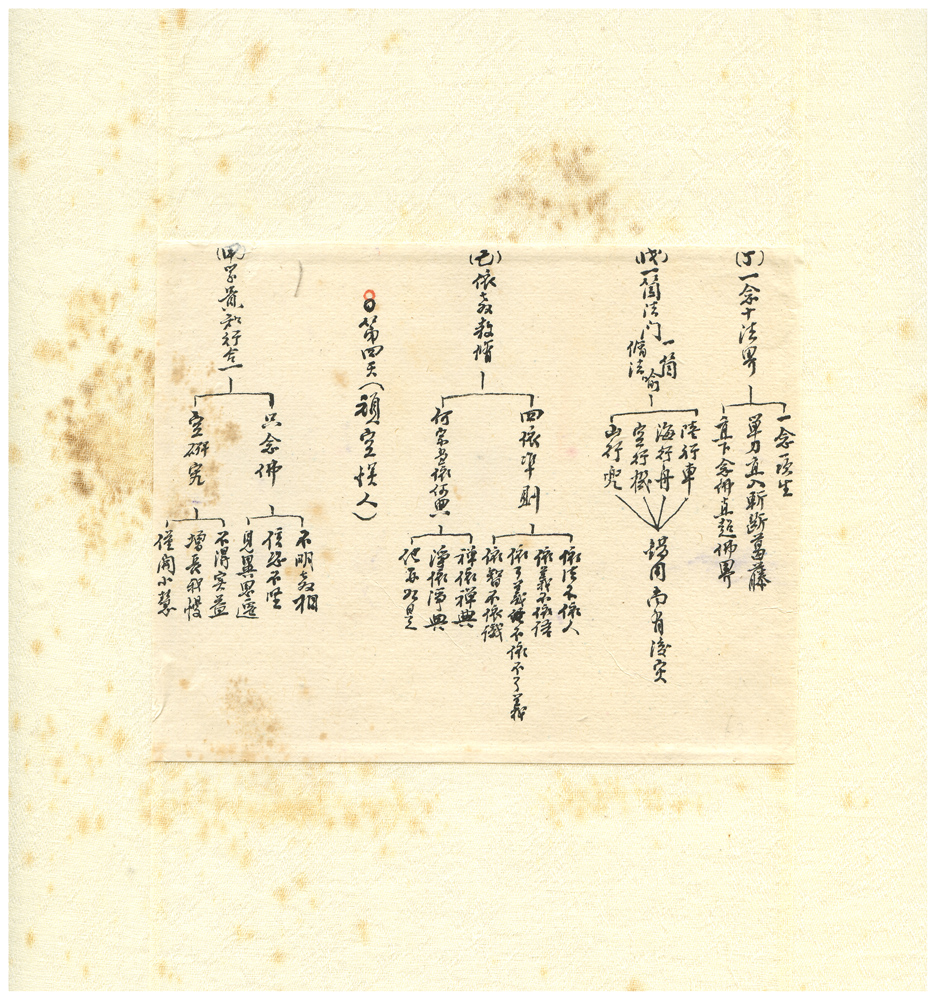 (丁)一念十法界
一念一次生
單刀直入斬斷葛藤
直下念佛直超佛界
(戊)一箇法門一箇脩法
喻
陸行車
海行舟
空行機
山行兜
錯用尚有淩災
(己)依教教脩
四依準則
依法不依人
依義不依語
依了義不依不了義
依智不依識
何宗當依何典
禪依禪典
淨依淨典
他亦如是
第四天(頑空悞人)
(甲)學貴知行合一
只念佛
不明教相
信念不堅
見異思遷
空研究
不得實益
增長我慢
僅開小慧